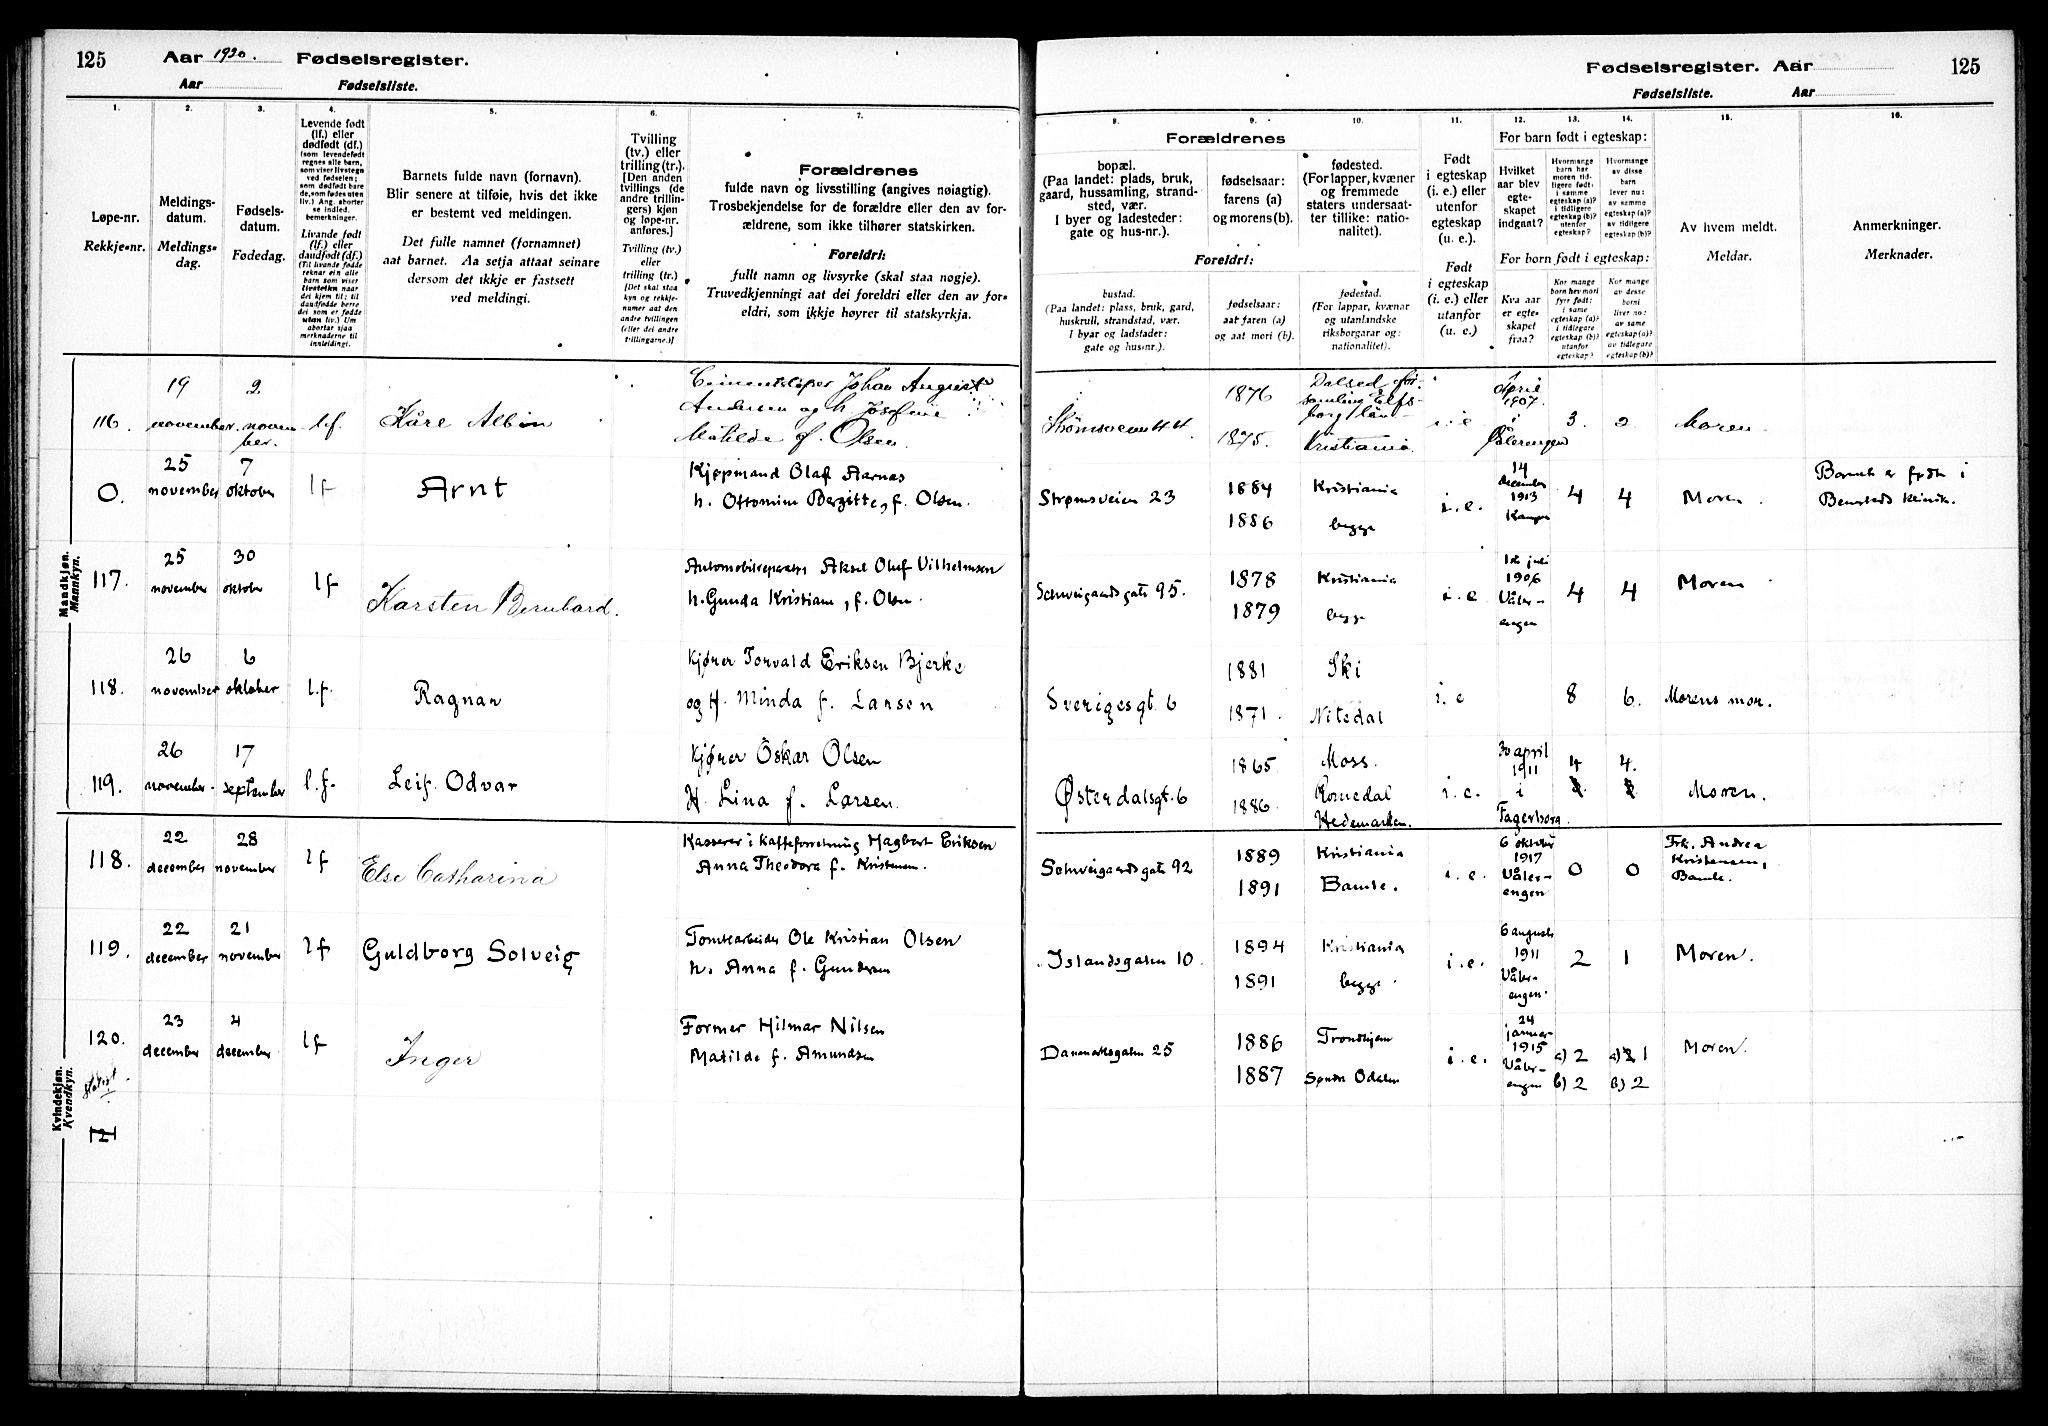 125
Aar 1920. Fødselsregister.
Aar Fødselsliste.
Fødselsregister. Aar 125
Fødselsliste. Aar
1. 2. 3. 4. 5. 6. 7.
8. 9. 10. 11. 12. 13. 14. 15. 16.
Løpe-nr.
Rekkje-nr.
Meldings-
datum.
Meldings-
dag.
Fødsels-
datum.
Fødedag.
Levende født
(lf.) eller
dødfødt (df.)
(som levendefødt
regnes alle barn,
som viser livstegn
ved fødselen;
som dødfødt bare
de, som fødes uten
liv.) Ang. aborter
se indled.
bemerkninger.
Livande født
(lf.) eller
daudfødt (df.)
(Til livande fødde
reknar ein alle
barn som viser
livsteikn naar
dei kjem til; til
daudfødde berre
dei som er fødde
utan liv.) Um
abortar sjaa
merknaderne til
innleidingi.
Barnets fulde navn (fornavn).
Blir senere at tilføie, hvis det ikke
er bestemt ved meldingen.
Det fulle namnet (fornamnet)
aat barnet. Aa setja attaat seinare
dersom det ikkje er fastsett
ved meldingi.
Tvilling
(tv.) eller
trilling (tr.).
[Den anden
tvillings (de
andre trillin-
gers) kjøn
og løpe-nr.
anføres.]
Tvilling (tv.)
eller
trilling (tr.)
[Det skal staa
kyn og rekkje-
numer aat den
andre tvillingen
(eller dei andre
trillingarne.)]
Forældrenes
fulde navn og livsstilling (angives nøiagtig).
Trosbekjendelse for de forældre eller den av for-
ældrene, som ikke tilhører statskirken.
Foreldri:
fullt namn og livsyrke (skal staa nøgje).
Truvedkjenningi aat dei foreldri eller den av for-
eldri, som ikkje høyrer til statskyrkja.
Forældrenes
bopæl.
(Paa landet: plads, bruk,
gaard, hussamling, strand-
sted, vær.
I byer og ladesteder:
gate og hus-nr.).
fødselsaar:
farens (a)
og morens (b).
fødested.
(For lapper, kvæner
og fremmede
staters undersaat-
ter tillike: natio-
nalitet).
Foreldri:
bustad.
(Paa landet: plass, bruk, gard,
huskrull, strandstad, vær.
I byar og ladstader:
gate og hus-nr.).
fødselsaar:
aat faren (a)
og aat mori (b).
fødestad.
(For lappar, kvænar
og utanlandske
riksborgarar og:
nationalitet).
Født
i egteskap
(i. e.) eller
utenfor
egteskap
(u. e.).
Født
i egteskap
(i. e.) eller
utanfor
(u. e.).
For barn født i egteskap:
Hvilket
aar blev
egte-
skapet
indgaat?
Hvormange
barn har
moren tid-
ligere født:
i samme
egteskap (a)?
i tidligere
egteskap (b)?
utenfor
egteskap?
Hvormange
av disse
barn
lever nu:
av samme
egteskap (a)?
av tidligere
egteskap (b)?
For barn født i egteskap:
Kva aar
er egte-
skapet
fraa?
Kor mange
barn hev mori
fyrr født:
i same
egteskap (a)?
i tidlegare
egteskap (b)?
utanfor
egteskap?
Kor mange
av desse
borni
liver no:
av same
egteskap (a)?
av tidlegare
egteskap (b)?
Av hvem meldt.
Meldar.
Anmerkninger.
Merknader.
Mandkjøn.
Mannkyn.
116. 19 november. 2 november. l.f. Kåre Albin
Cementstøper Johan August
Andersen og h. Josefine
Matilde f. Olsen.
1876 1875. Kristiania i.e
April 1907. i Vålerengen 3. 2. Moren.
0. 25 november 7 oktober lf Arnt
Kjøpmand Olaf Aarnes
h. Ottomine Bergitte, f. Olsen.
Strømsveien 23 1884 1886 Kristiania begge i.e.
14 december 1913 Kampen 4 4 Moren.
Barnet er født i
Benesteds Klinik.
117. 25 november 30 oktober lf Karsten Bernhard.
Automobilreparatør Aksel Oluf Vilhelmsen
h. Gunda Kristiane, f. Olsen.
Schweigaardsgate 95. 1878 1879 Kristiania begge i.e
1ste juli 1906 Våler-
engen 4 4 Moren
118. 26 november 6 oktober l.f. Ragnar
Kjører Torvald Eriksen Bjerke
og H. Minda f. Larsen
Sverigesgt. 6 1881 1871. Ski Nitedal i.e 8 6. Morens mor.
119. 26 november. 17 september l.f. Leif Odvar
Kjører Oskar Olsen
H. Lina f. Larsen.
Østerdalsgt. 6 1865 1886. Moss. Romedal
Hedemarken. i.e.
30 april 1911 i
Fagerborg. 4 4. Moren.
Kvindekjøn.
Kvendkyn.
118. 22 december 28 november lf Else Catharina
Kasserer i kaffeforretning Hagbart Eriksen
Anna Theodora f. Kristensen.
Schweigaardsgate 92 1889 1891 Kristiania Bamle. i.e.
6 oktober 1917 Våler-
engen 0 0 Frk. Andrea
Kristensen,
Bamle.
119. 22 december 21 november lf Guldborg Solveig
Tomtearbeider Ole Kristian Olsen
h. Anna f. Gundersen
Islandsgaten 10. 1894 1891 Kristiania begge i.e.
6 august 1911 Våler-
engen. 2 1 Moren.
120. 23 december 4 december lf Inger
Former Hilmar Nilsen
Matilde f. Amundsen
Danmarksgaten 25 1886 1887 Trondhjem Søndre Odalen i.e.
24 januar 1915 Våler-
engen a) 2 b) 2 a) 1 b) 2 Moren.
121